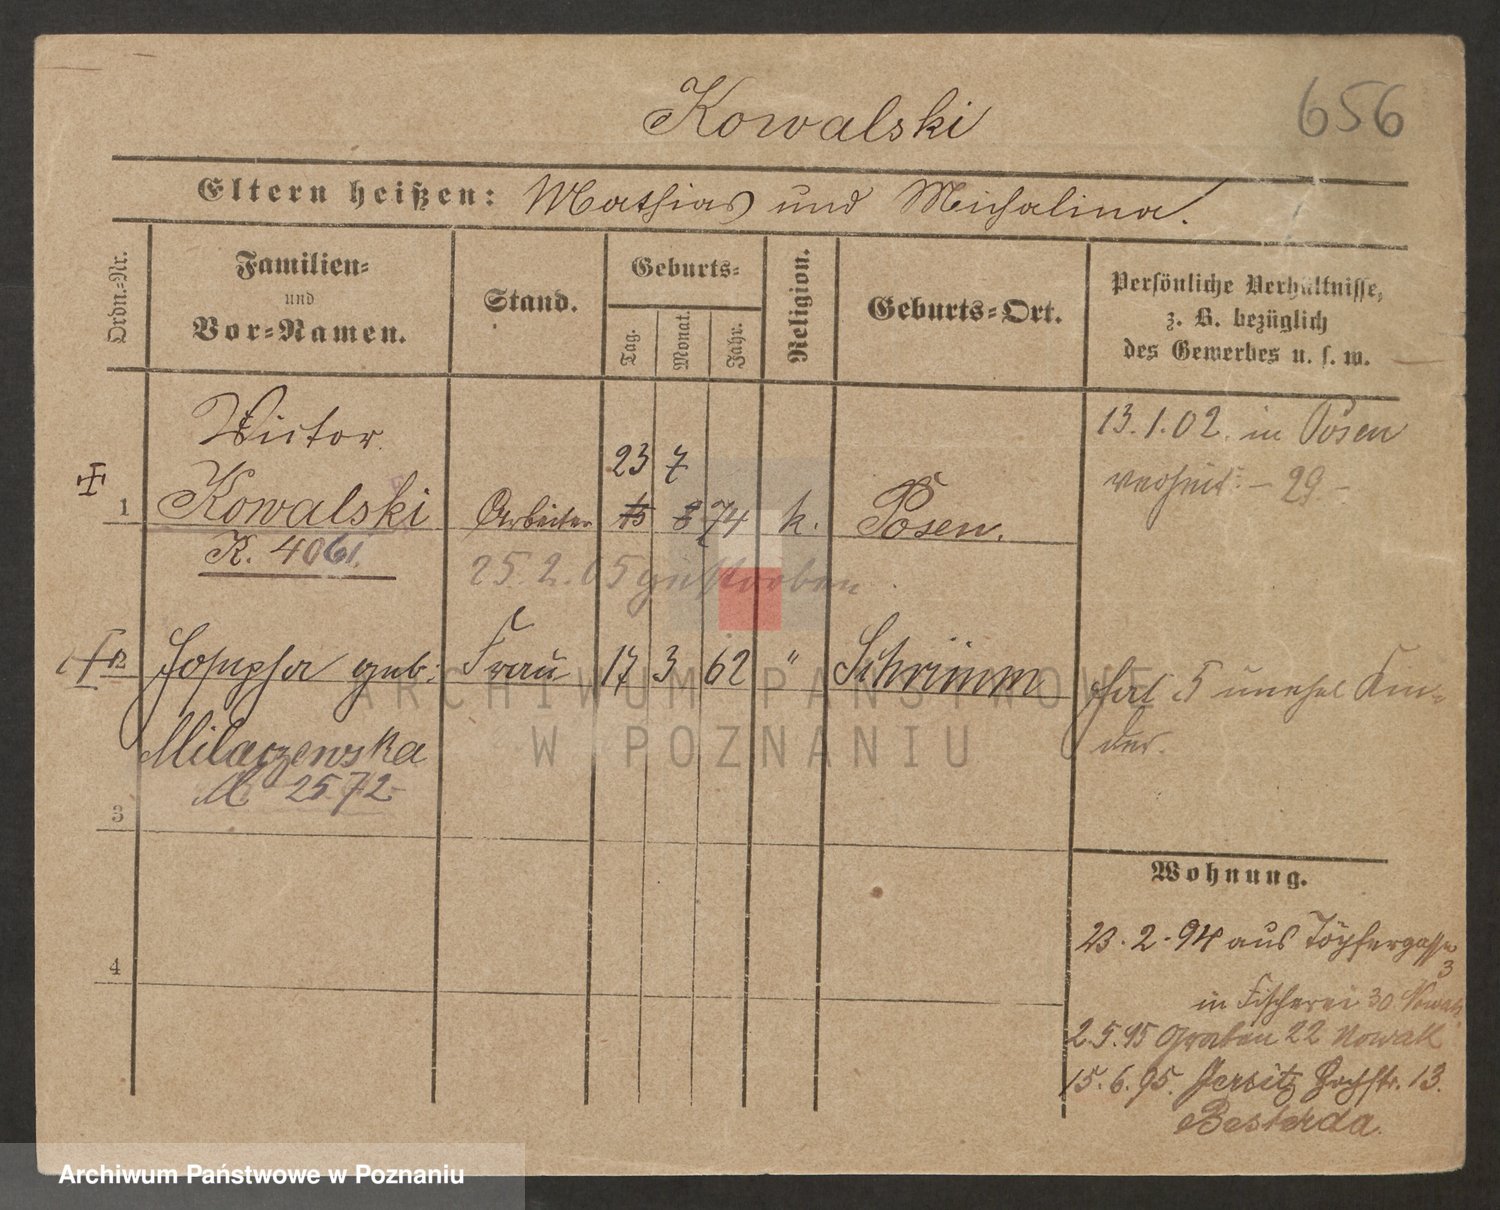 Kowalski
656
Eltern heißen: Mathias und Michalina.
Ordn.-Nr.
Familien-
und
Vor-Namen.
Stand.
Geburts-
Tag.
Monat.
Jahr.
Religion.
Geburts-Ort.
Persönliche Verhältnisse,
z. B. bezüglich
des Gewerbes u. s. w.
Victor
23 7
1 Kowalski Arbeiter 15 8 74 k. Posen.
K. 4061.
25.2.05 gestorben
13.1.02. in Posen
verheir. - 29 -
2 Josepha geb: Frau 17 3 62 " Schrimm
Milaczewska
M 2572
hat 5 unehel Kin-
der.
3
4
Wohnung.
23.2.94 aus Töpfergasse
3
in Fischerei 30 Nowak
2.5.95 Graben 22 Nowak
15.6.95. Jersitz Hochstr. 13.
Besterda.
ARCHIWUM PAŃSTWOWE
W POZNANIU
Archiwum Państwowe w Poznaniu